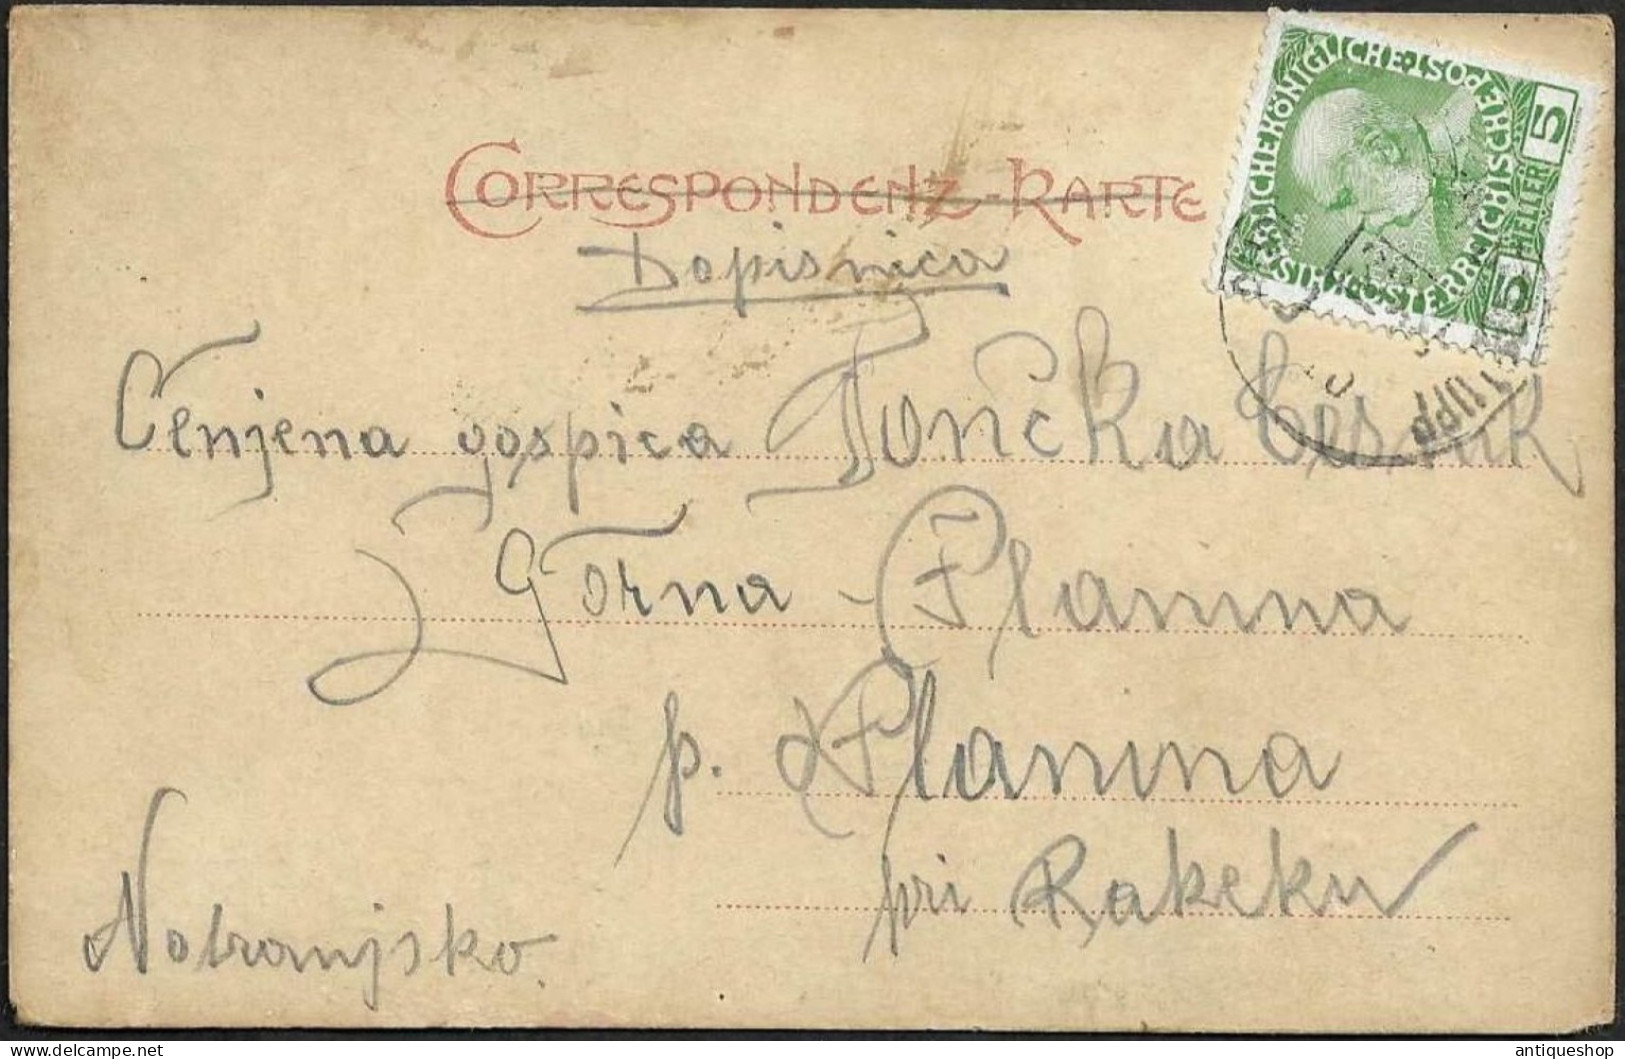 CORRESPONDENZ-KARTE
Dopisnica
KAISERLICHE KÖNIGLICHE ÖSTERREICHISCHE POST
5 HELLER 5
Cenjena gospica Tončka
Gorna-Planina
p. Planina
pri Rakeku
Notranjsko.
antiqueshop